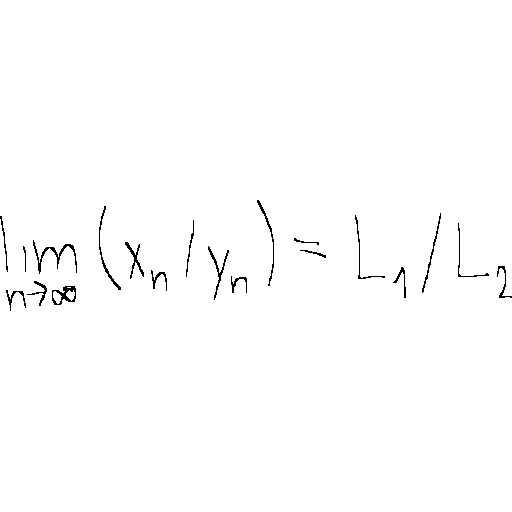 lim n→∞ (x_n / y_n) = L_1 / L_2